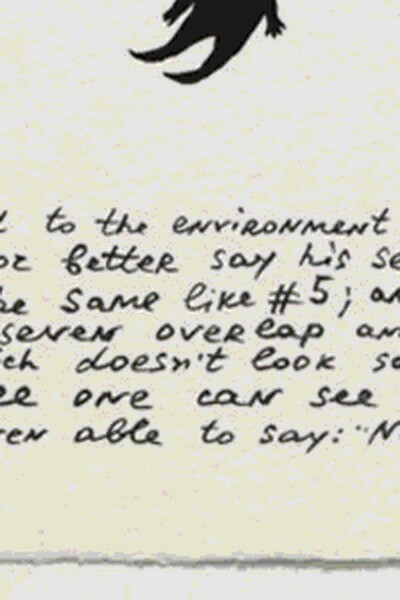 to the environment
or better say his se
he same like #5; an
seven overlap an
ch doesn't look so
ee one can see
ten able to say: "N